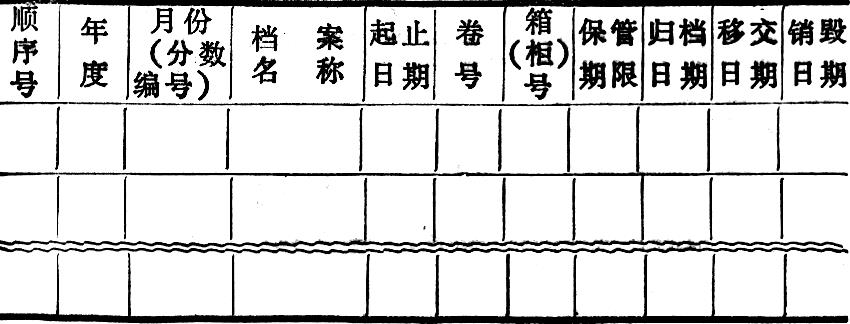 顺序号
年度
月份
(分数
编号)
档案
名称
起止
日期
卷号
箱
(柜)
号
保管
期限
归档
日期
移交
日期
销毁
日期